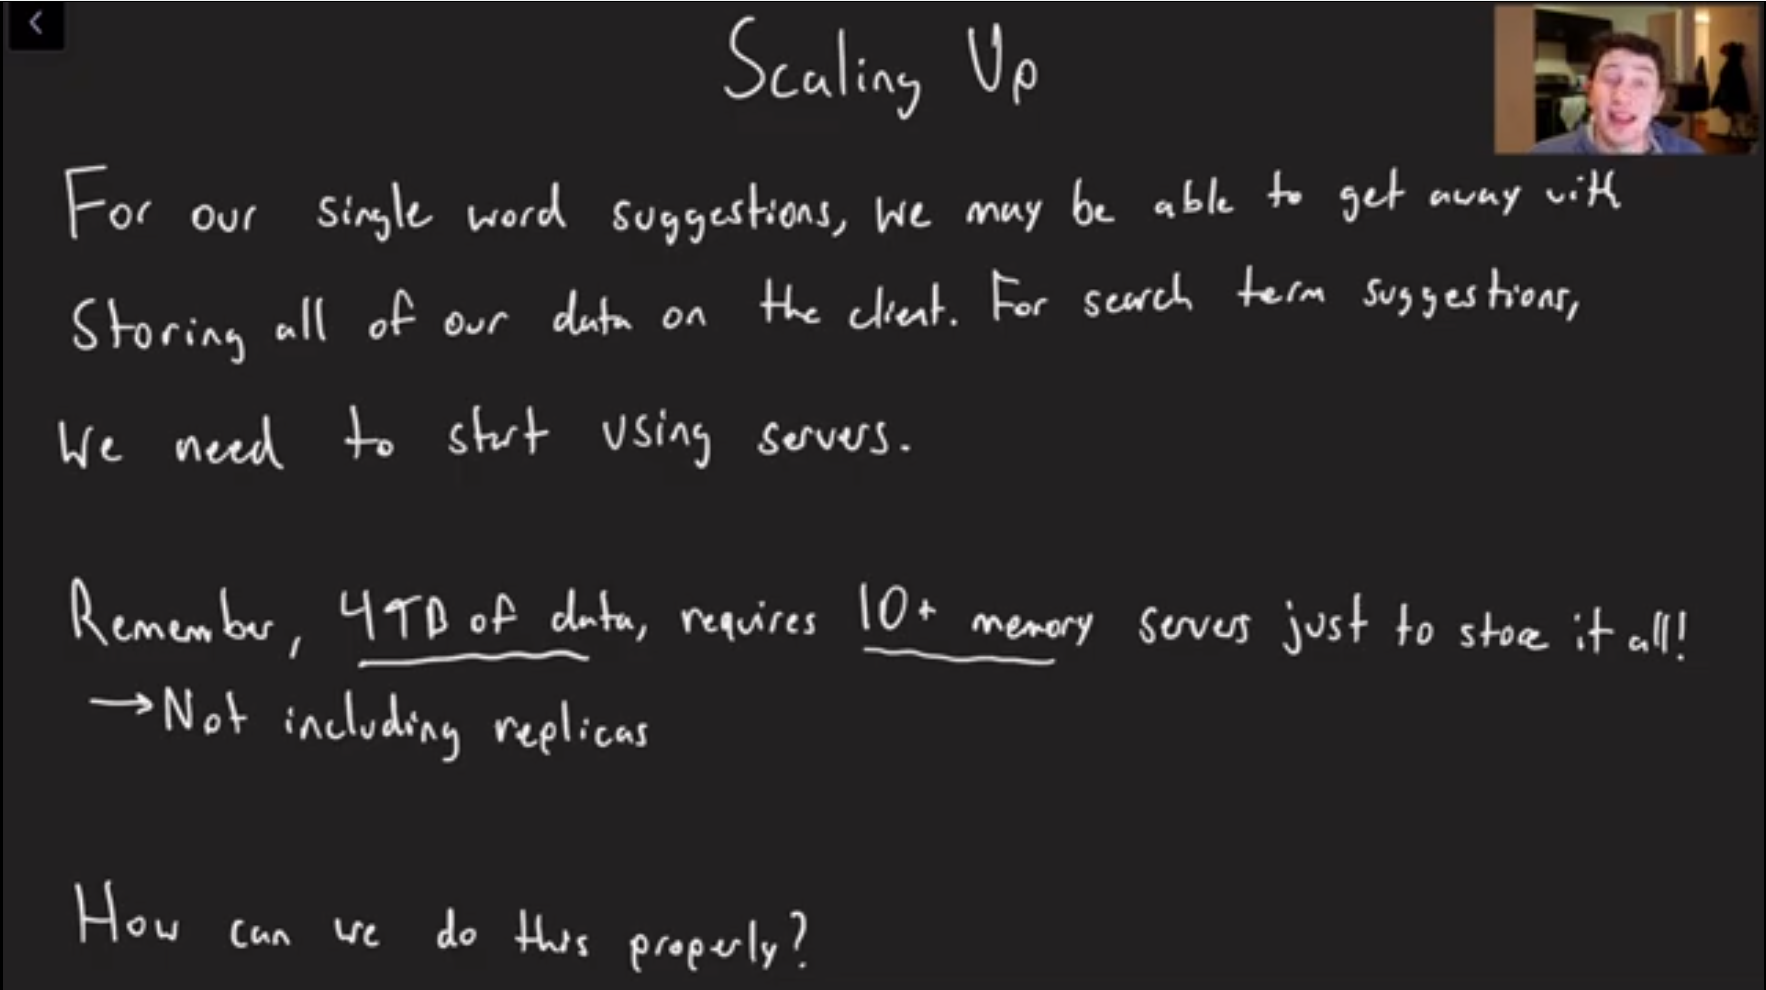 Scaling Up
For our single word suggestions, we may be able to get away with
Storing all of our data on the client. For search term suggestions,
We need to start using servers.
Remember, 4TB of data, requires 10+ memory servers just to store it all!
→ Not including replicas
How can we do this properly?